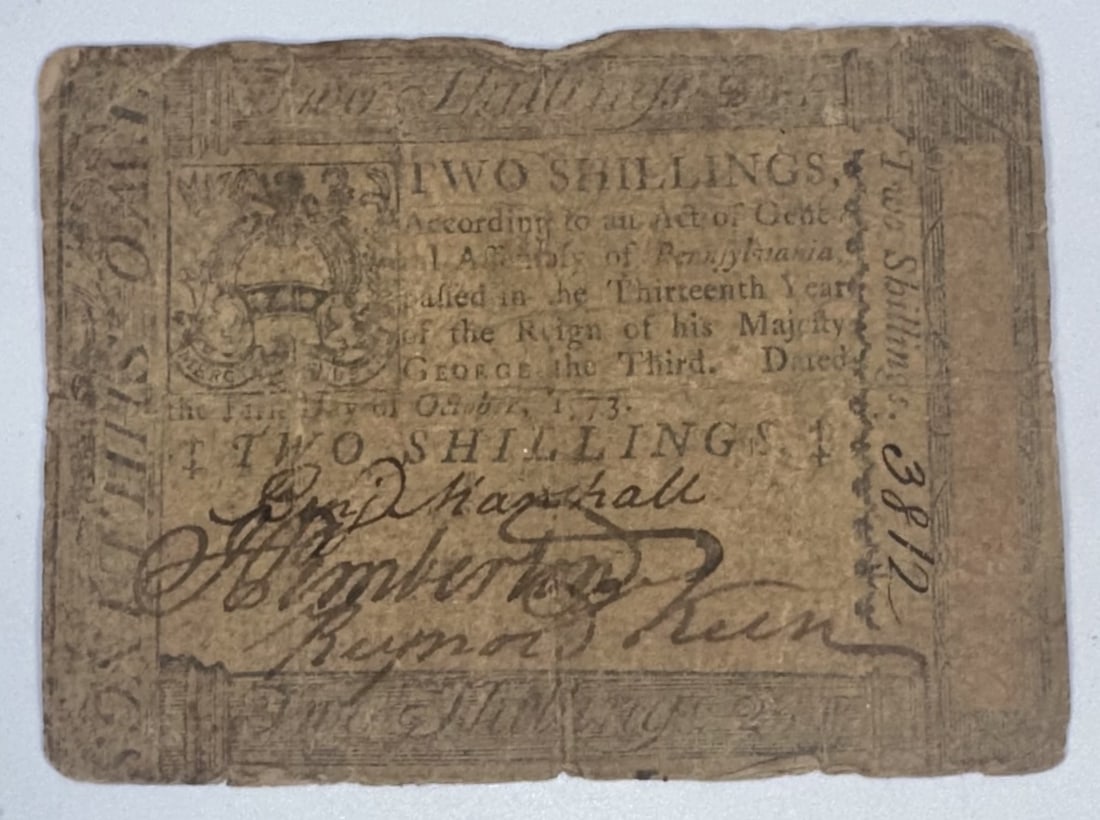 Two Shillings
TWO SHILLINGS
TWO SHILLINGS,
According to an Act of Gene-
al Assembly of Pennsylvania,
passed in the Thirteenth Year
of the Reign of his Majesty
GEORGE the Third. Dated
the First Day of October, 1773.
‡ TWO SHILLINGS. ‡
Two Shillings.
3812
Benj Marshall
Pemberton
Reynold Keen
Two Shillings
MERCY